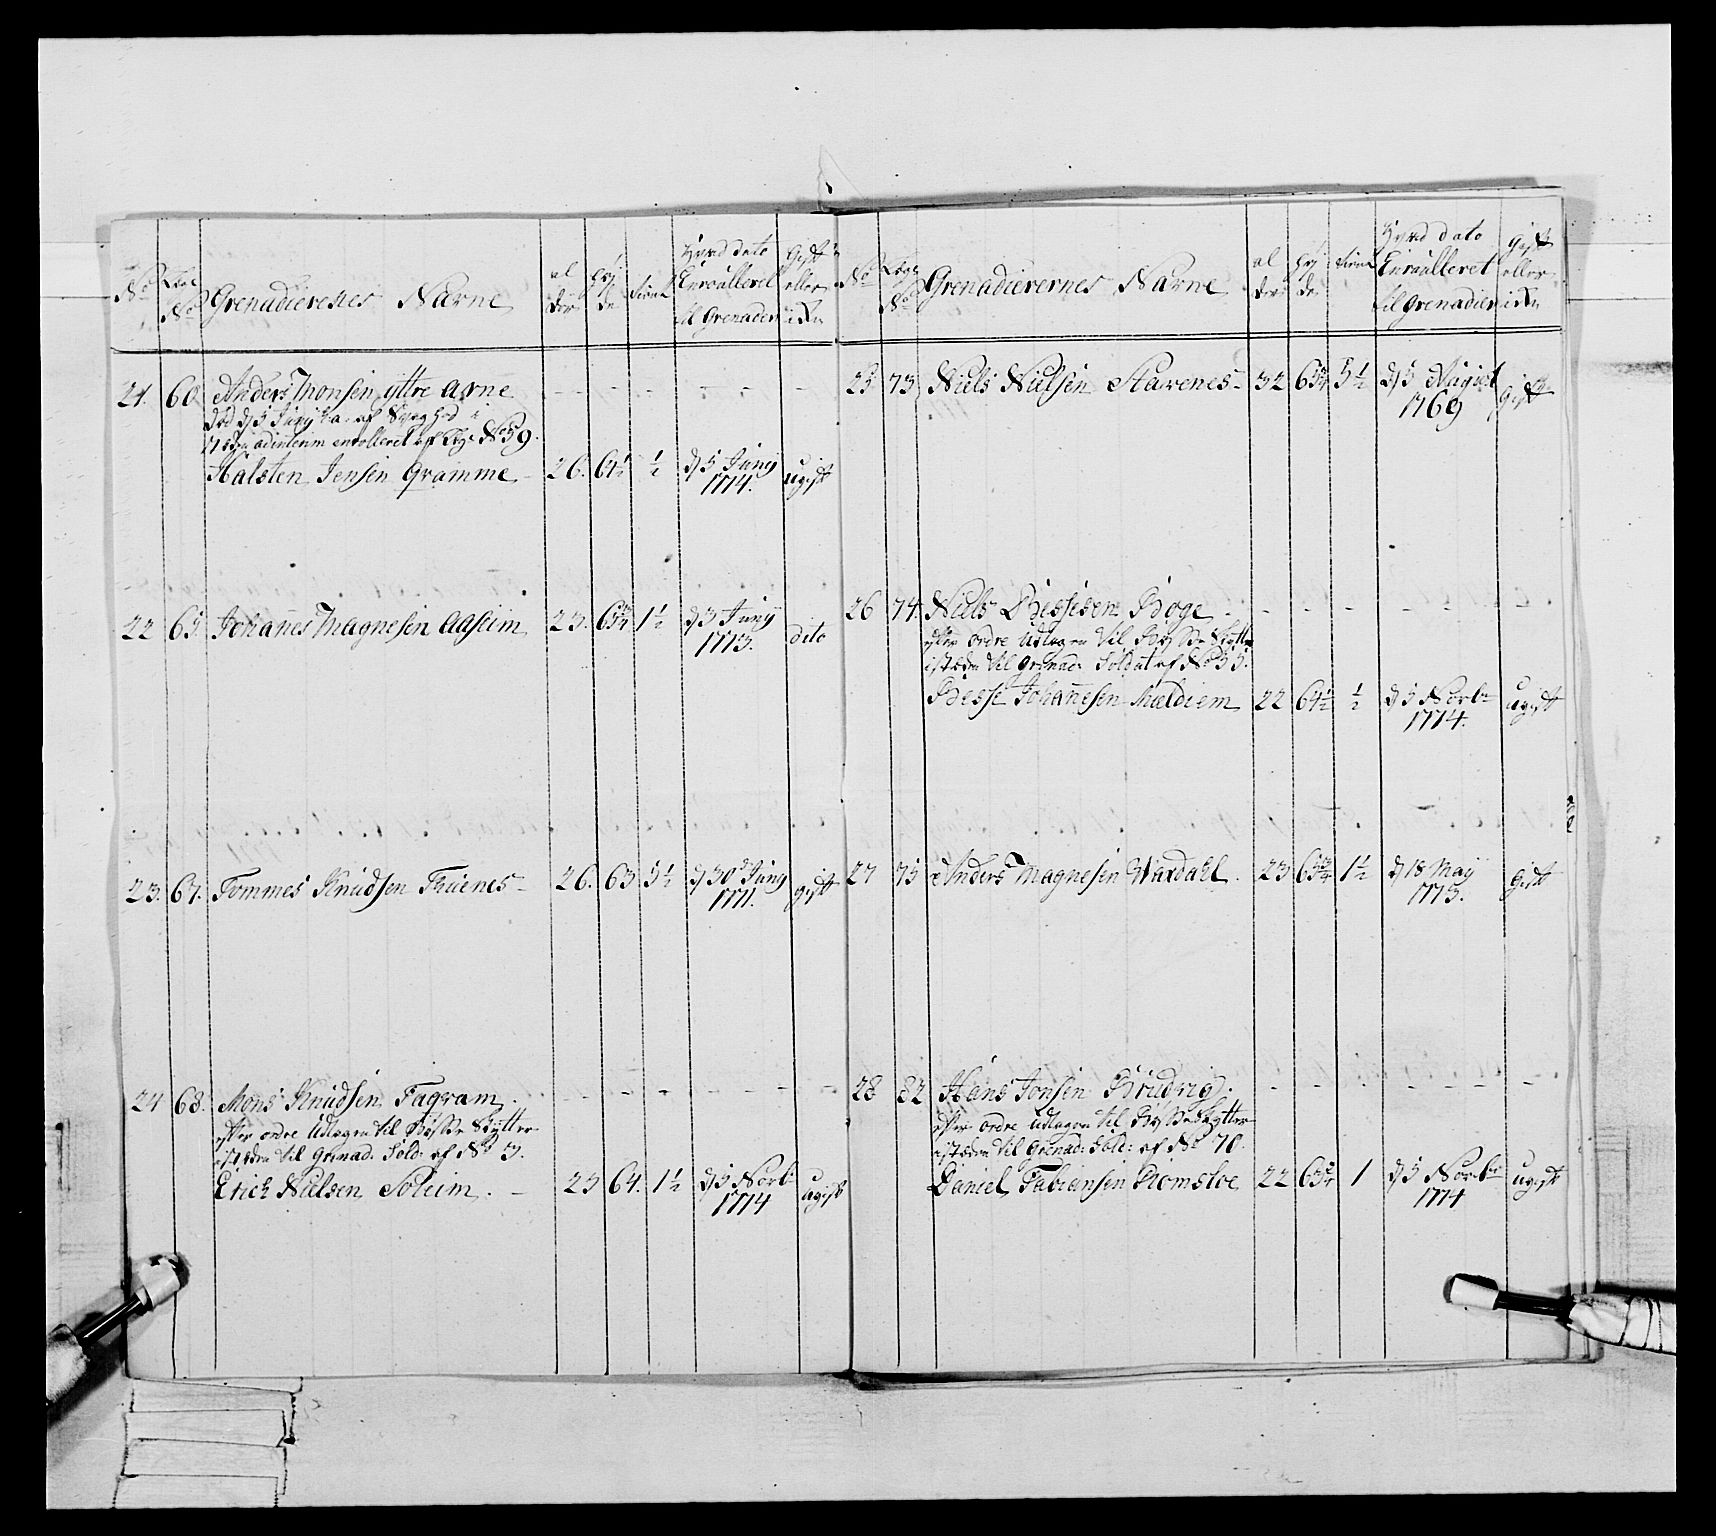 No Lægs No Grenaderernes Navne al der Höy de tiene Hvad dato Enroulleret til Grenader Gift eller ikke
21. 60. Anders Monsen yttre Arne - - - - - -
Död d 5 Junij
istæden adinterim enrolleret af Læg No 59.
Halsten Jensen Gramme - 26. 64½ ½ d 5 Junij 1774. ugift
22 65 Johanes Magnesen Aaseim 23. 63¾ 1½ d 3 Junij 1773. dito
23. 67. Tommes Knudsen Truenes - 26. 63 3½ d 30 Junij 1771. gift
24 68. Mons Knudsen Fagram. - - - - - -
efter ordre Udtagen til Bösse Skytter
istæden til Grenad: Sold: af No 3.
Erich Nielsen Soleim. - 23 64. 1½ d 5 Novbr 1774 ugift
No Lægs No Grenadierernes Navne al der Höy de tiene Hvad dato Enroulleret til Grenadier Gift eller ikke
25 73 Niels Nielsen Stavenes - 32 63¾ 5½ d 5 August 1769 Gift
26 74. Niels Bessesen Boge - - - - - -
efter ordre Udtagen til Bösse Skytter
istæden til Grenad: Soldat af No 55.
Besse Johanesen Mældiem 22 64½ ½ d 5 Novbr 1774. ugift
27 75 Anders Magnesen Vaxdahl. 23 63¾ 1½ d 18 May 1773. Gift
28 82 Hans Jonsen Brudvig. - - - - - -
efter ordre Udtagen til Bösse Skytter
istæden til Grenad: Sold: af No 70.
Daniel Fabiansen Romsloe 22 63¾ 1 d 5 Novbr 1774 ugift